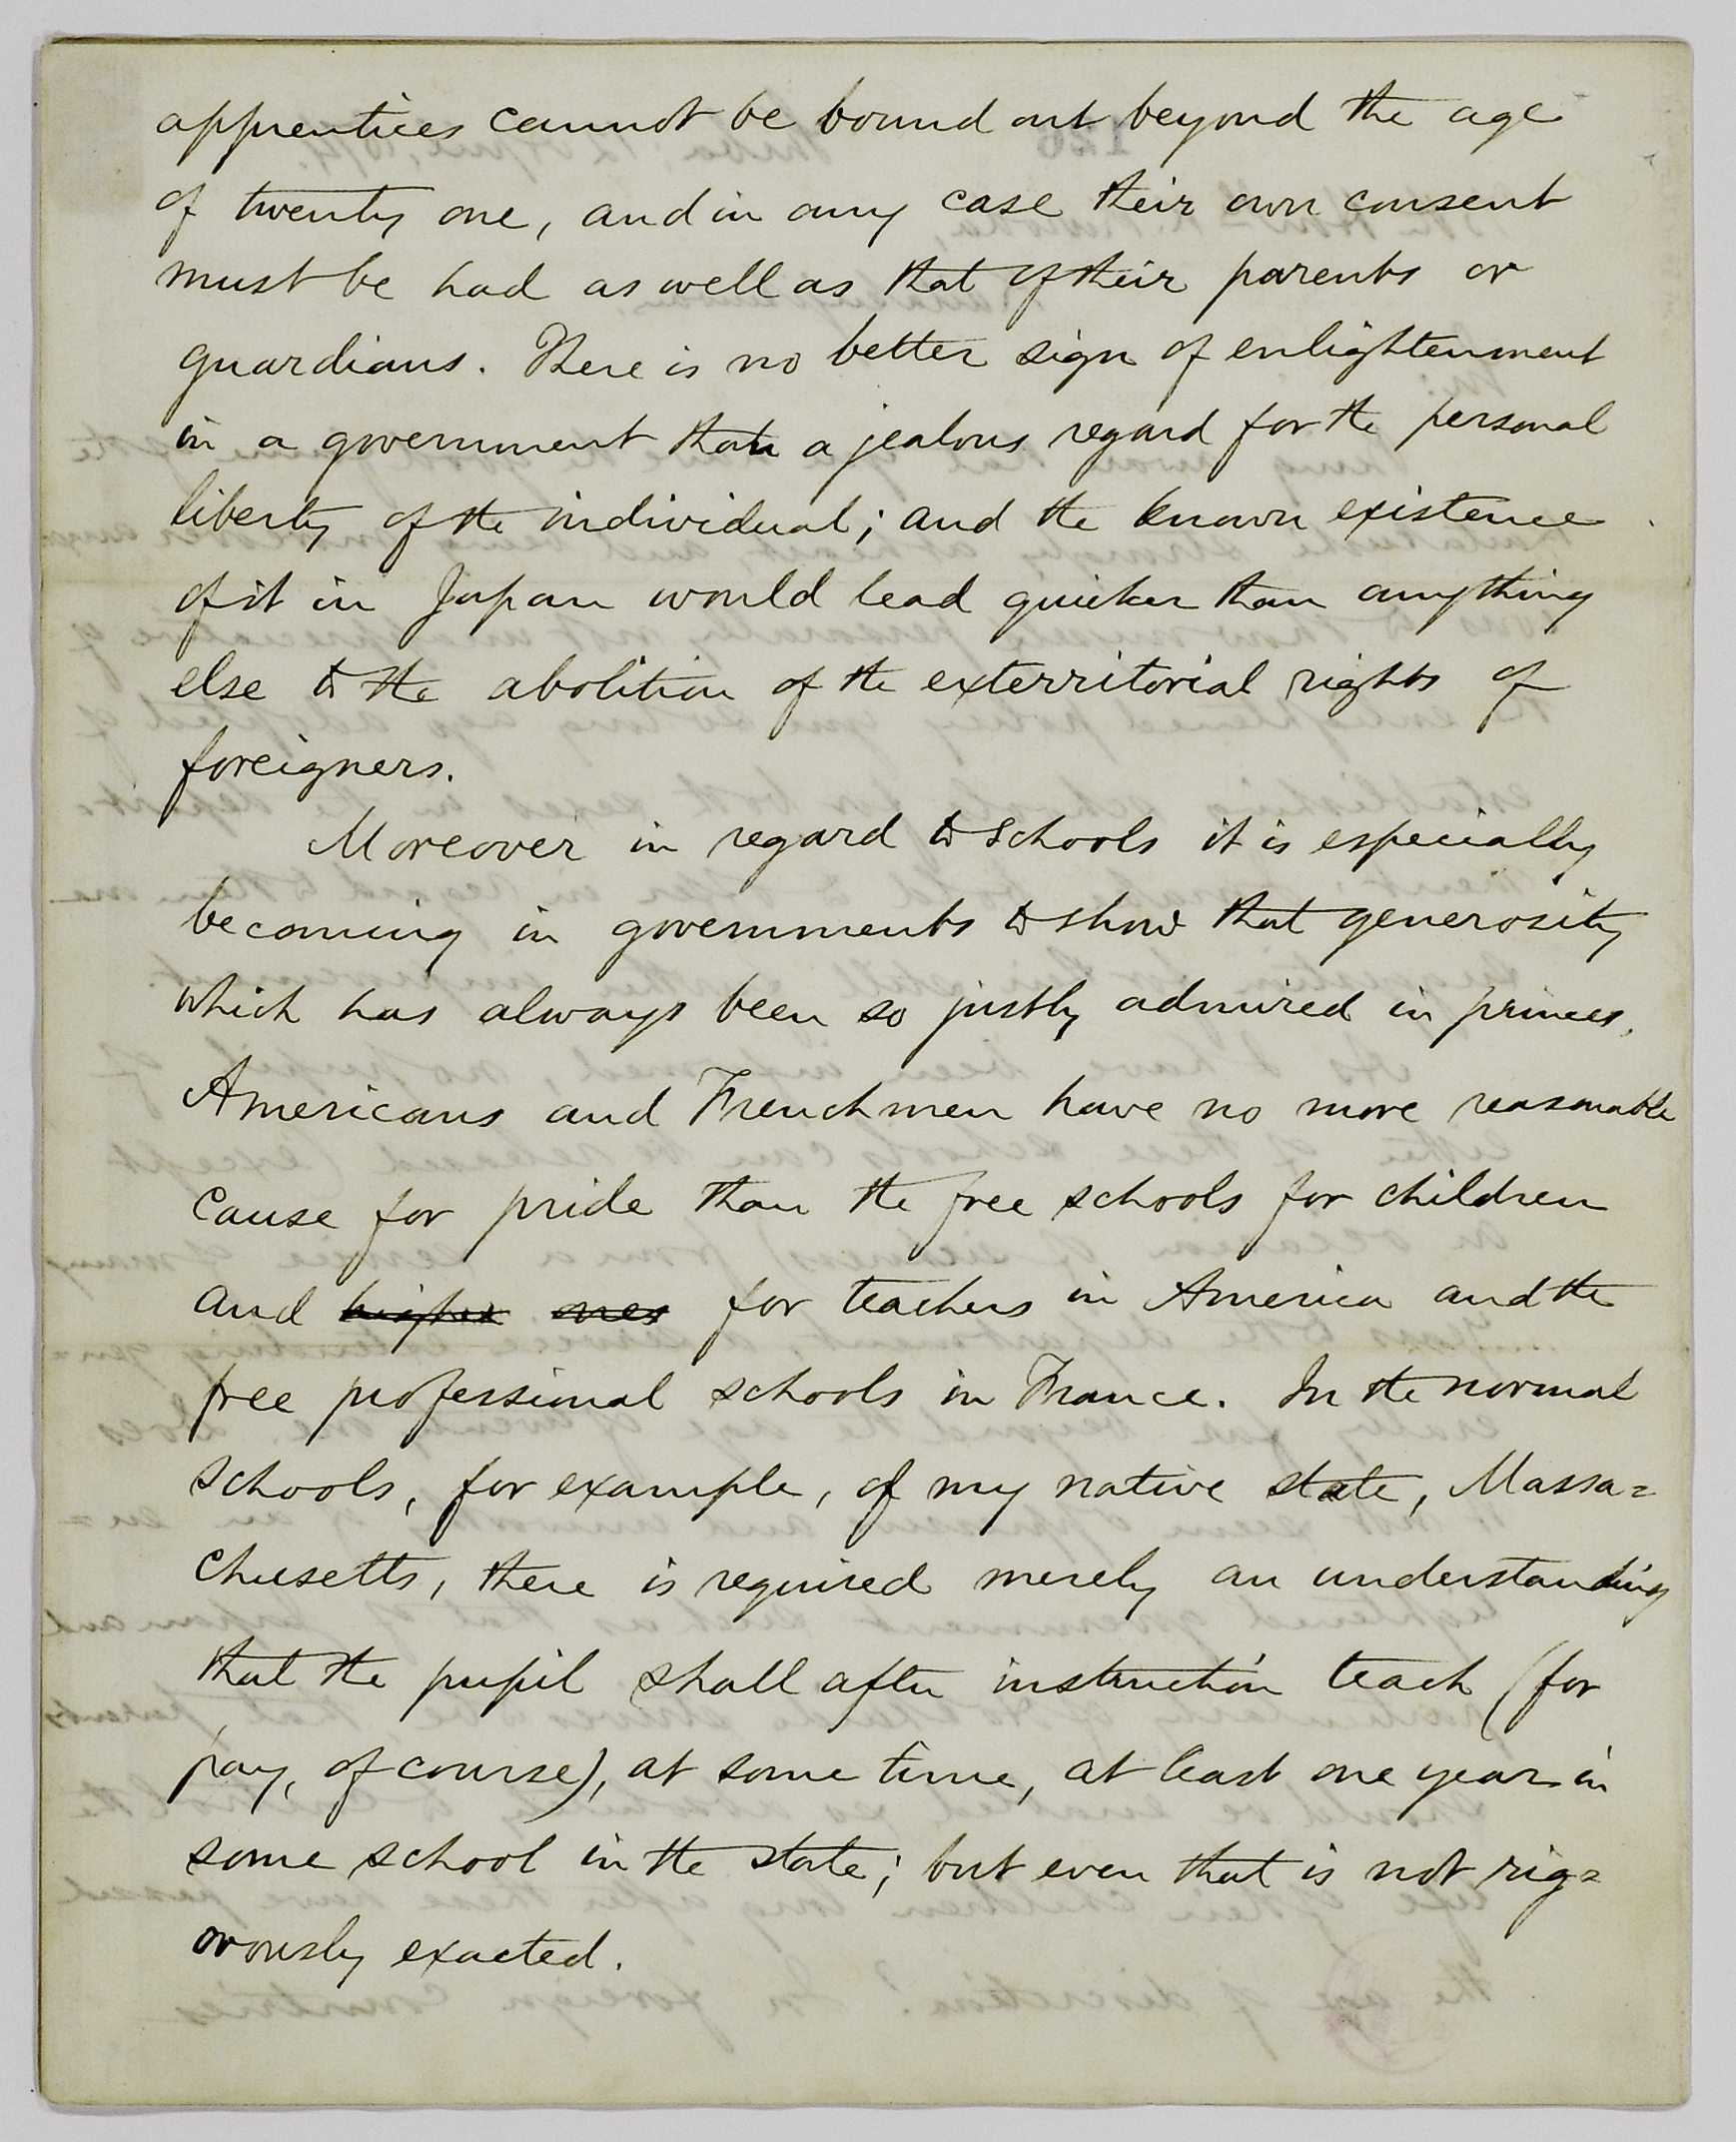 apprentices cannot be bound out beyond the age
of twenty one, and in any case their own consent
must be had as well as that of their parents or
guardians. There is no better sign of enlightenment
in a government than a jealous regard for the personal
liberty of the individual; and the known existence
of it in Japan would lead quicker than anything
else to the abolition of the exterritorial rights of
foreigners.
Moreover in regard to schools it is especially
becoming in governments to show that generosity
which has always been so justly admired in princes.
Americans and Frenchmen have no more reasonable
cause for pride than the free schools for children
and higher ones for teachers in America and the
free professional schools in France. In the normal
schools, for example, of my native state, Massa=
chusetts, there is required merely an understanding
that the pupil shall after instruction teach (for
pay, of course), at some time, at least one year in
some school in the state; but even that is not rig=
orously exacted.